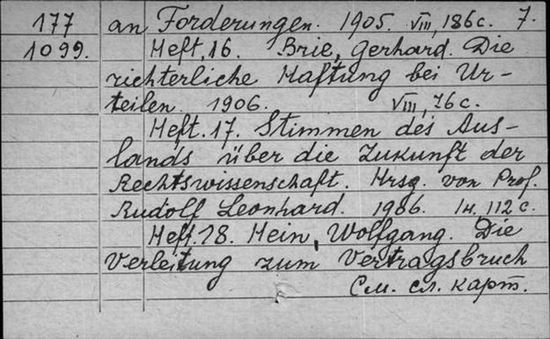 177 an Forderungen. 1905. VIII, 186 c. 7.
1099. Heft. 16. Brie, Gerhard. Die
richterliche Haftung bei Ur-
teilen. 1906. VIII, 76 c.
Heft. 17. Stimmen des Aus-
lands über die Zukunft der
Rechtswissenschaft. Hrsg. von Prof.
Rudolf Leonhard. 1906. 112 c.
Heft. 18. Hein, Wolfgang. Die
Verleitung zum Vertragsbruch
См. сл. карт.